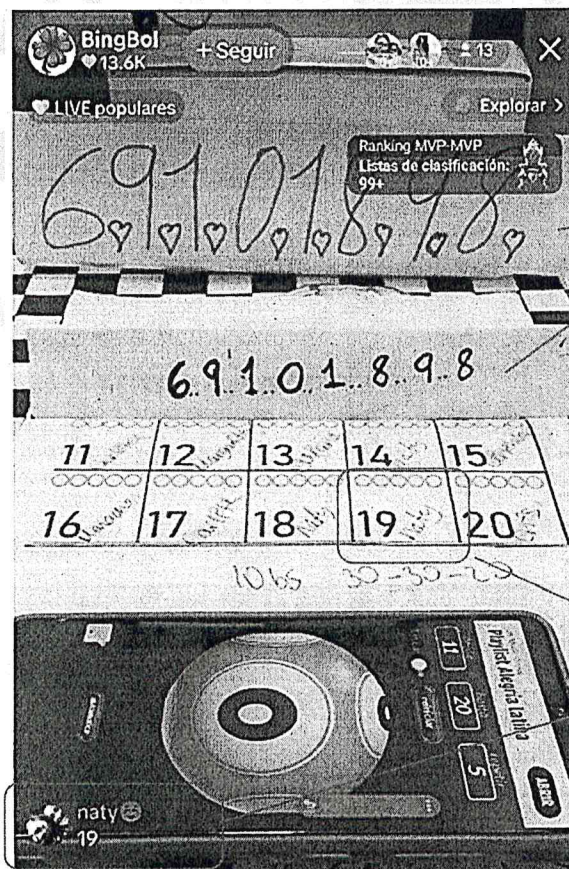 BingBol
13.6K
+ Seguir
13
LIVE populares
Explorar >
Ranking MVP-MVP
Listas de clasificación:
99+
6 9 1 0 1 8 9 8
6..9..1..0..1..8..9..8
11 12 13 14 15
16 17 18 19 Naty 20
10 bs 30-30-20
Playlist Alegria latina
11 20 5
naty
19